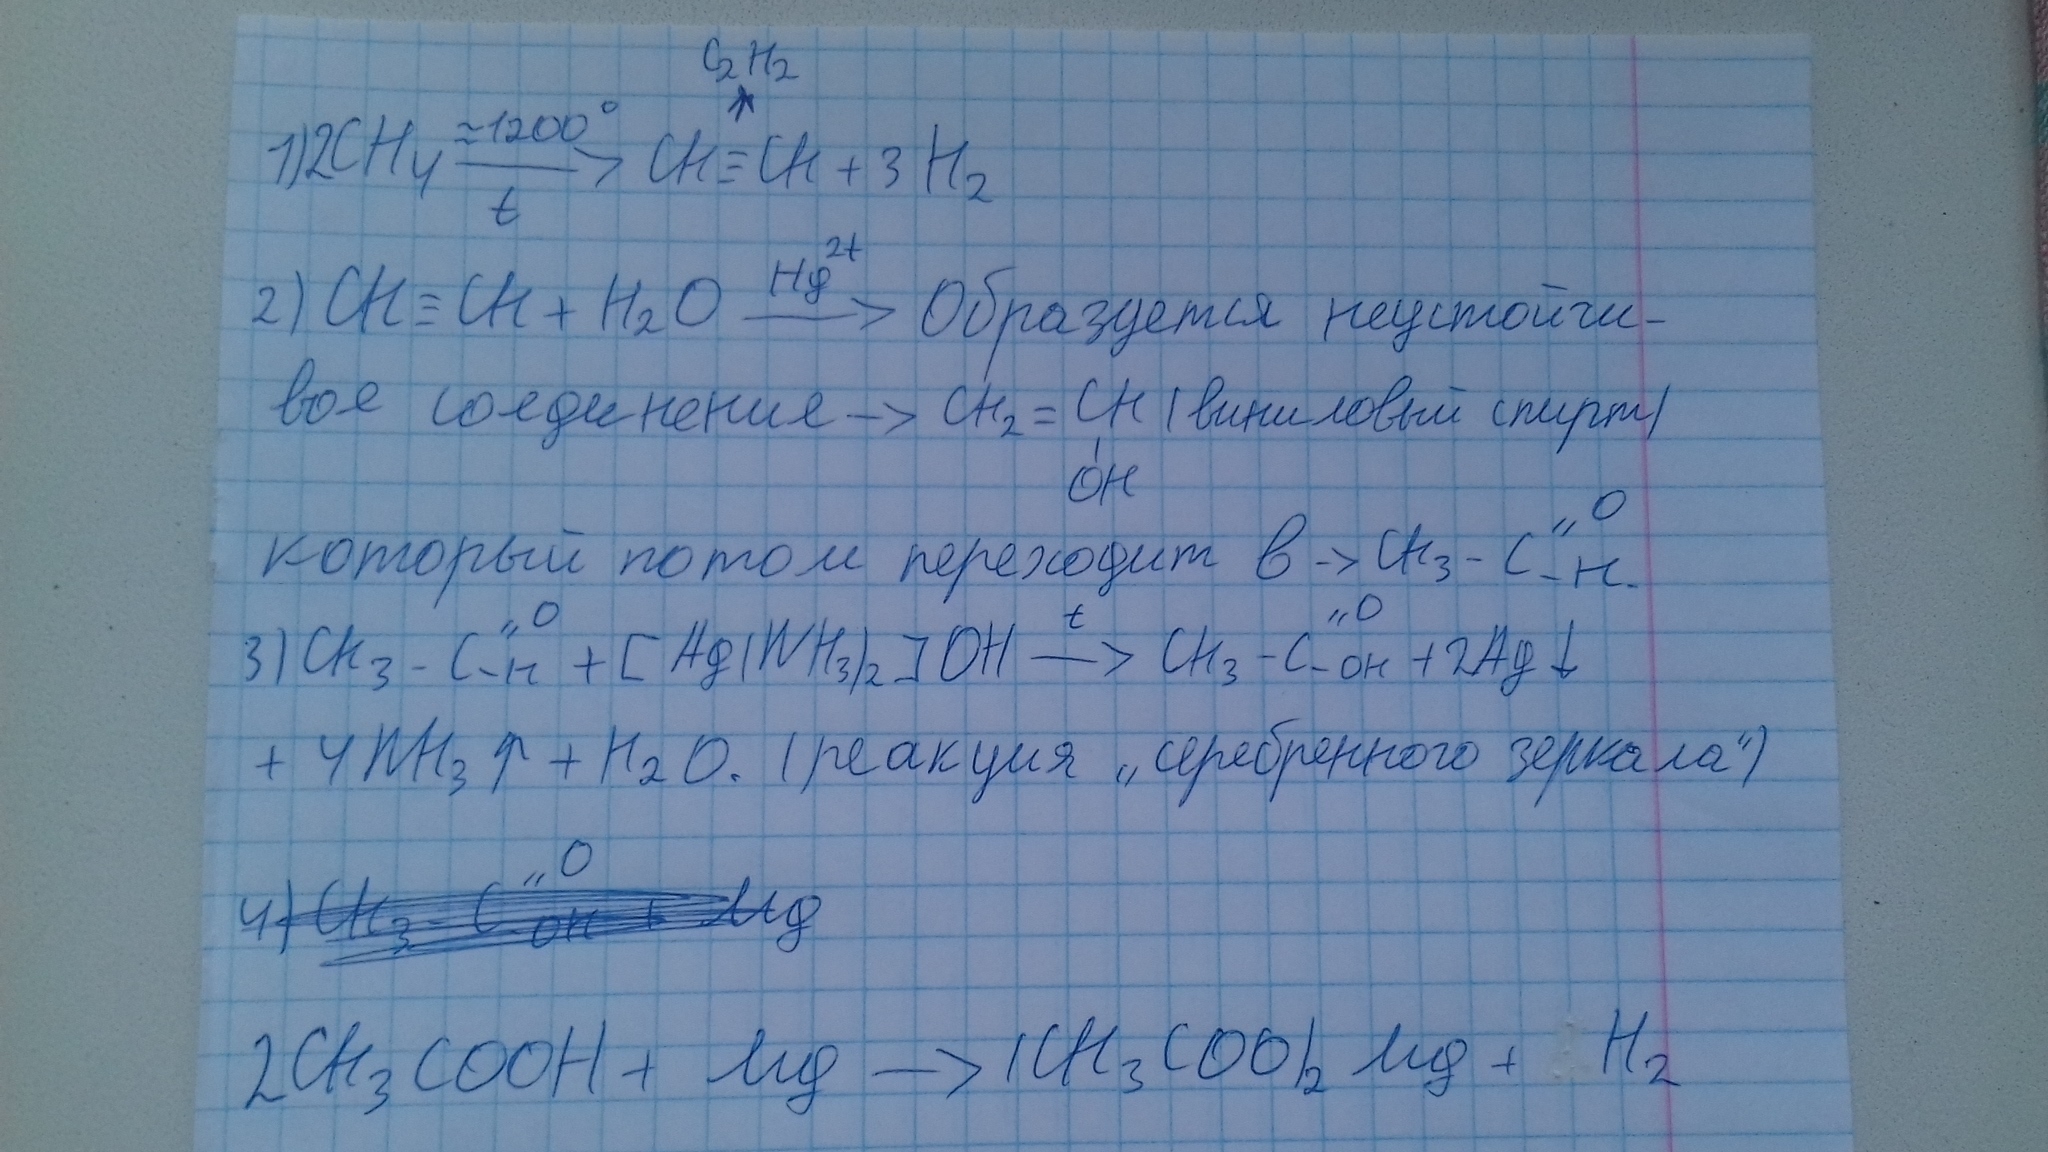 C₂H₂
1) 2CH₄ ≈1200° t → CH≡CH + 3H₂
2) CH≡CH + H₂O Hg²⁺ → Образуется неустойчи-
вое соединение → CH₂=CH (виниловый спирт)
OH
который потом переходит в → CH₃-C=O-H.
3) CH₃-C=O-H + [Ag(NH₃)₂]OH t → CH₃-C=O-OH + 2Ag↓
+ 4NH₃↑ + H₂O. (реакция „серебренного зеркала“)
4) CH₃-C=O OH + Mg
2CH₃COOH + Mg → (CH₃COO)₂Mg + H₂